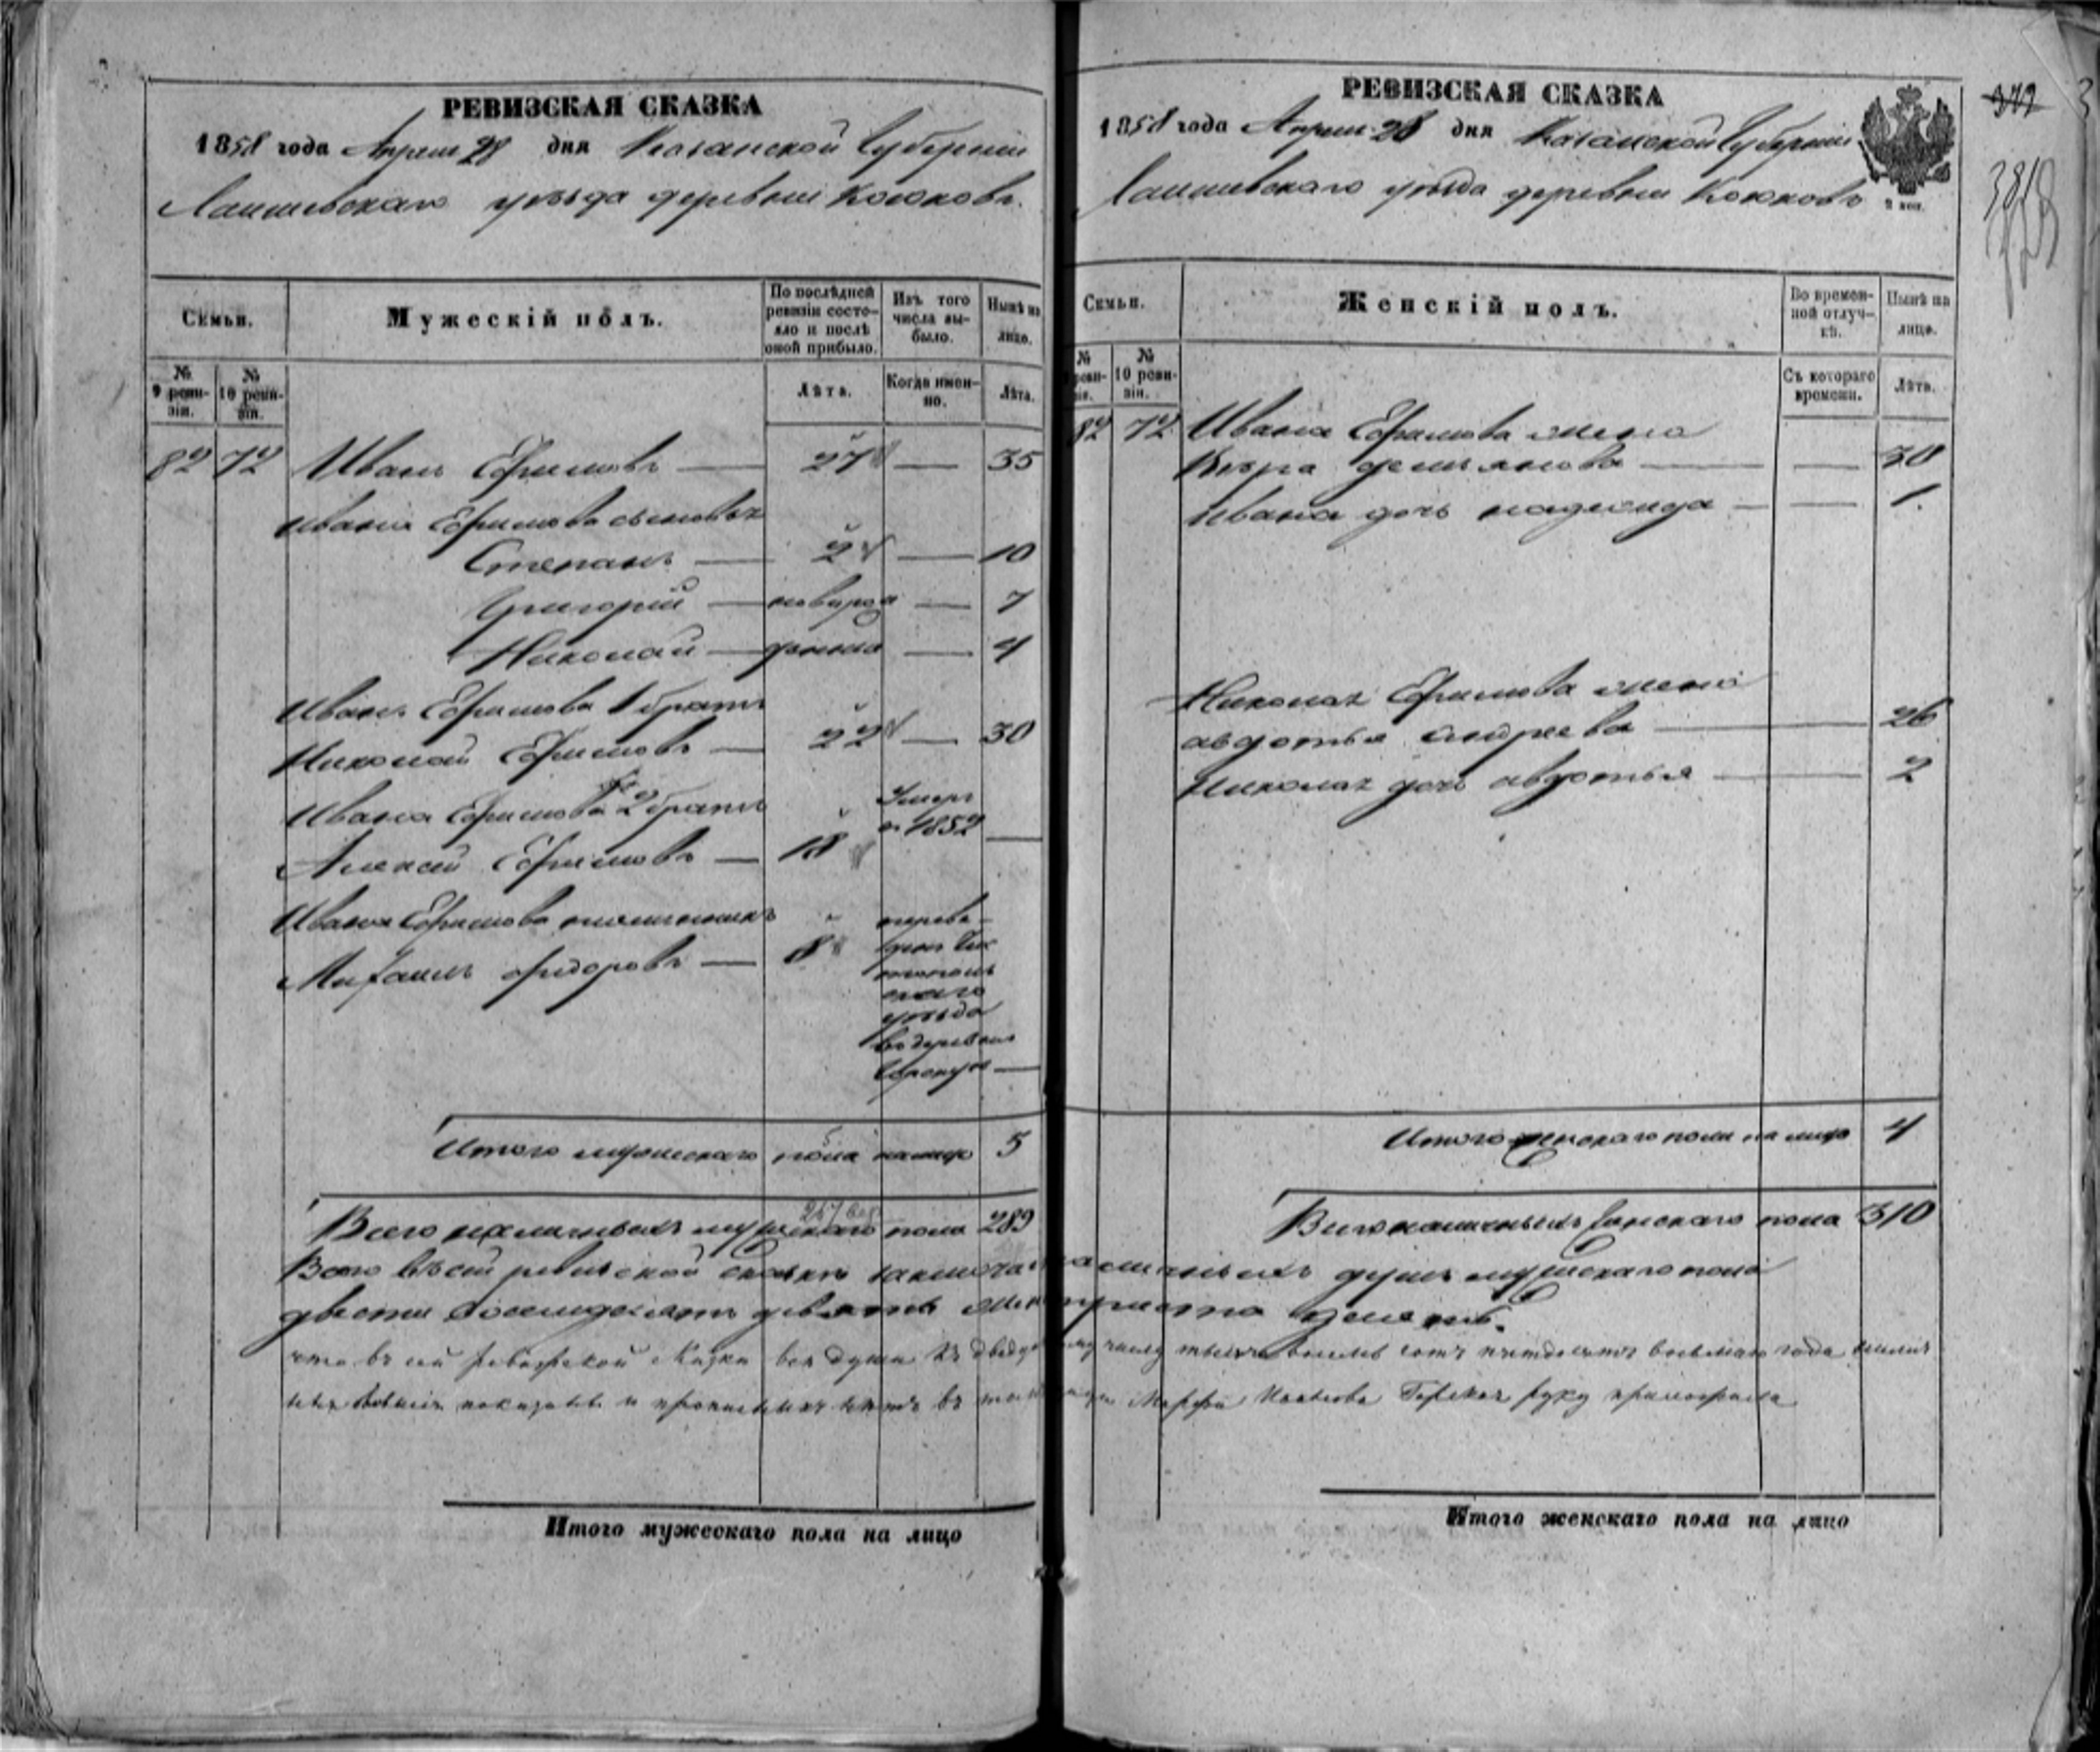 РЕВИЗСКАЯ СКАЗКА
1858 года Апреля 28 дня Казанской Губернии
Лаишевскаго уѣзда деревни Кокковъ
Семьи.
Мужескій полъ.
По послѣдней ревизіи состояло и послѣ оной прибыло.
Изъ того числа выбыло.
Нынѣ на лицо.
№ 9 ревизіи.
№ 10 ревизіи.
Лѣта.
Когда именно.
Лѣта.
82 72 Иванъ Ефимовъ — 27 — 35
Ивана Ефимова сыновья
Степанъ — 2 — 10
Григорій — новорож — 7
Николай — денные — 4
Ивана Ефимова 1 братъ
Николай Ефимовъ — 22 — 30
Ивана Ефимова 2 братъ
Алексей Ефимовъ — 18 Умеръ въ 1852 —
Ивана Ефимова племянникъ
Михаилъ Фидоровъ — 8
переве-
денъ Чис
топольс
каго
уѣзда
въ деревню
—
Итого мужескаго пола налицо 5
Всего наличныхъ мужескаго пола 289
РЕВИЗСКАЯ СКАЗКА
1858 года Апреля 28 дня Казанской Губерніи
Лаишевскаго уѣзда деревни Кокковъ
2 коп.
379
Семьи.
Женскій полъ.
Во временной отлучкѣ.
Нынѣ на лицо.
№ 9 ревизіи.
№ 10 ревизіи.
Съ котораго времени.
Лѣта.
82 72 Ивана Ефимова жена
Вѣра Демьянова — — 30
Ивана дочь надежида — — 1
Николая Ефимова жена
авдотья андреева — 26
Николая дочь авдотья — 2
Итого женскаго пола на лицо 4
Всего наличныхъ женскаго пола 310
Всего въ сей ревизской сказке наличныхъ душъ мужескаго пола
двести восемдесятъ девять триста десять.
что въ сей ревизской сказки все души къ тысяча восемь сотъ пятдесятъ восьмаго года
показаны и прописныхъ нетъ въ томъ руку приложила
Итого мужескаго пола на лицо
Итого женскаго пола на лицо